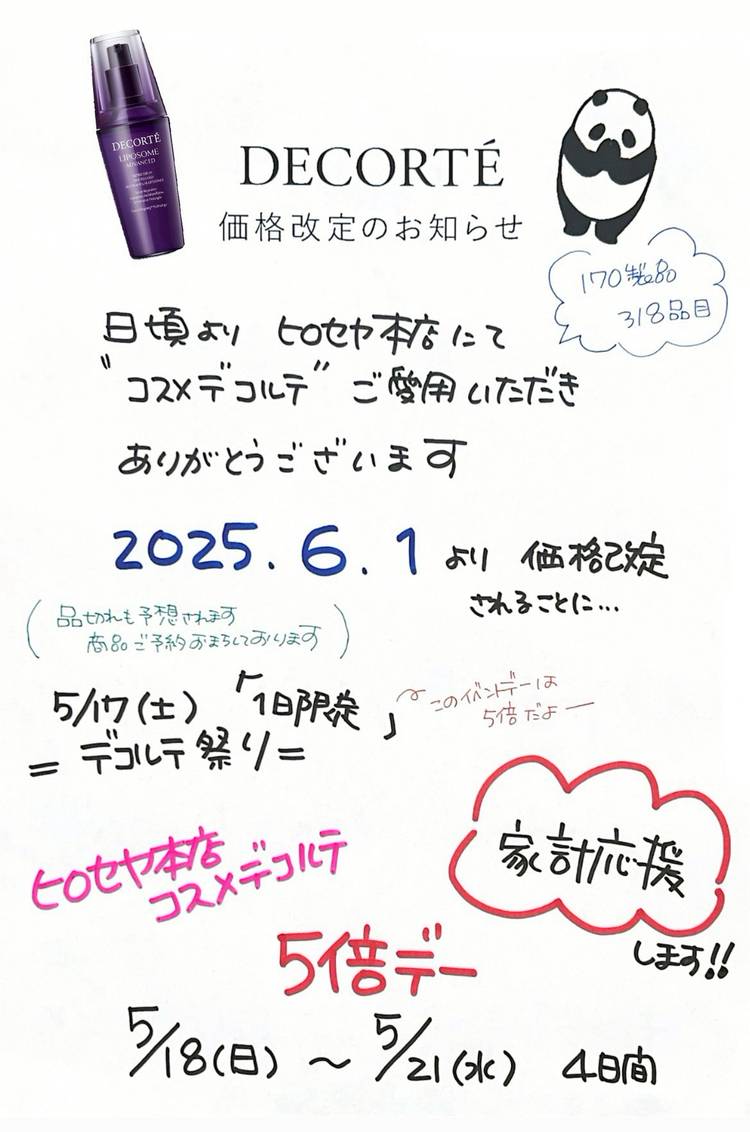 DECORTÉ
LIPOSOME
ADVANCED
DECORTÉ
価格改定のお知らせ
170製品
318品目
日頃より ヒロセヤ本店にて
"コスメデコルテ" ご愛用いただき
ありがとうございます
2025.6.1 より 価格改定
されることに…
(品切れも予想されます
商品ご予約おまちしております)
5/17(土) 「1日限定」
=デコルテ祭り=
このイベントデーは
5倍だよー
家計応援
します!!
ヒロセヤ本店
コスメデコルテ
5倍デー
5/18(日) ～ 5/21(水) 4日間